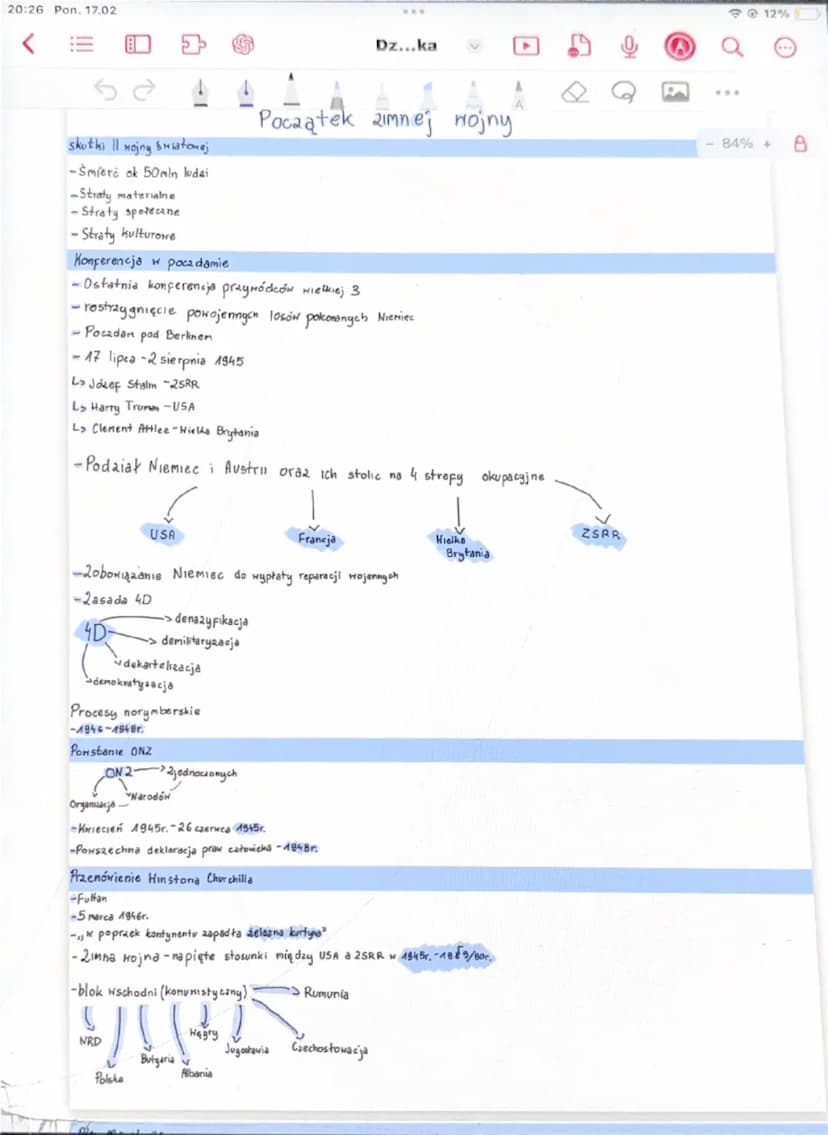 20:26 Pon. 17.02
12%
Dz...ka
Początek zimnej wojny
84%
skutki II wojny światowej
-Śmierć ok 50mln ludzi
-Straty materialne
-Straty społeczne
-Straty kulturowe
Konferencja w poczdamie
-Ostatnia konferencja przywódców wielkiej 3
-rostrzygnięcie powojennych losów pokonanych Niemiec
-Poczdam pod Berlinem
-17 lipca -2 sierpnia 1945
↳ Józef Stalin -ZSRR
↳ Harry Truman -USA
↳ Clement Attlee -Wielka Brytania
-Podział Niemiec i Austrii oraz ich stolic na 4 strefy okupacyjne
USA Francja Wielka Brytania ZSRR
-Zobowiązanie Niemiec do wypłaty reparacji wojennych
-Zasada 4D
4D
denazyfikacja
demilitaryzacja
dekartelizacja
demokratyzacja
Procesy norymberskie
Powstanie ONZ
ONZ → Zjednoczonych
Narodów
Organizacja
-Kwiecień 1945r. -26 czerwca 1945r.
-Powszechna deklaracja praw człowieka -1948r.
Przemówienie Winstona Churchilla
-Fulton
-5 marca 1946r.
-,,w poprzek kontynentu zapadła żelazna kurtyna"
-Zimna wojna -napięte stosunki między USA a ZSRR w 1945r.
-blok wschodni (komunistyczny) → Rumunia
NRD
Polska
Bułgaria
Albania
Węgry
Jugosławia
Czechosłowacja